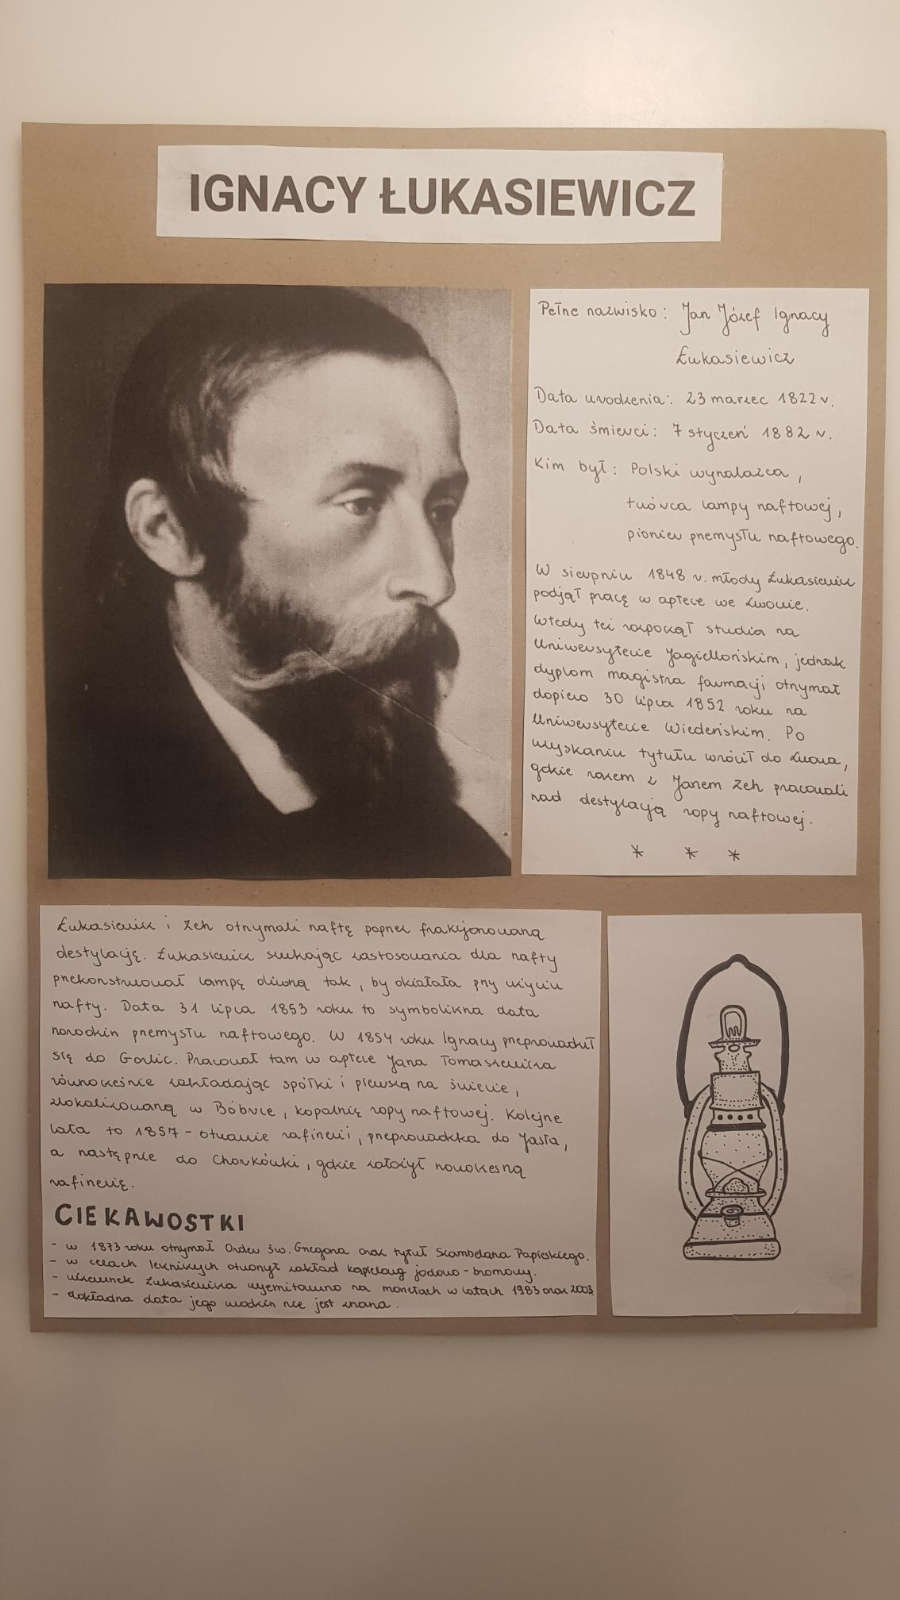 IGNACY ŁUKASIEWICZ
Pełne nazwisko: Jan Józef Ignacy
Łukasiewicz
Data urodzenia: 23 marzec 1822 r.
Data śmierci: 7 styczeń 1882 r.
Kim był: Polski wynalazca,
twórca lampy naftowej,
pionier przemysłu naftowego.
W sierpniu 1848 r. młody Łukasiewicz
podjął pracę w aptece we Lwowie.
Wtedy też rozpoczął studia na
Uniwersytecie Jagiellońskim, jednak
dyplom magistra farmacji otrzymał
dopiero 30 lipca 1852 roku na
Uniwersytecie Wiedeńskim. Po
uzyskaniu tytułu wrócił do Lwowa,
gdzie razem z Janem Zeh pracowali
nad destylacją ropy naftowej.
* * *
Łukasiewicz i Zeh otrzymali naftę poprzez frakcjonowaną
destylację. Łukasiewicz szukając zastosowania dla nafty
przekonstruował lampę oliwną tak, by działała przy użyciu
nafty. Data 31 lipca 1853 roku to symboliczna data
narodzin przemysłu naftowego. W 1854 roku Ignacy przeprowadził
się do Gorlic. Pracował tam w aptece Jana Tomaszewicza
równocześnie zakładając spółki i pierwszą na świecie,
zlokalizowaną w Bóbrce, kopalnię ropy naftowej. Kolejne
lata to 1857 - otwarcie rafinerii, przeprowadzka do Jasła,
a następnie do Chorkówki, gdzie założył nowoczesną
rafinerię.
CIEKAWOSTKI
- w 1873 roku otrzymał Order św. Grzegorza oraz tytuł Szambelana Papieskiego.
- w celach leczniczych otworzył zakład kąpielowy jodowo-bromowy.
- wizerunek Łukasiewicza wyemitowano na monetach w latach 1983 oraz 2003
- dokładna data jego urodzin nie jest znana.